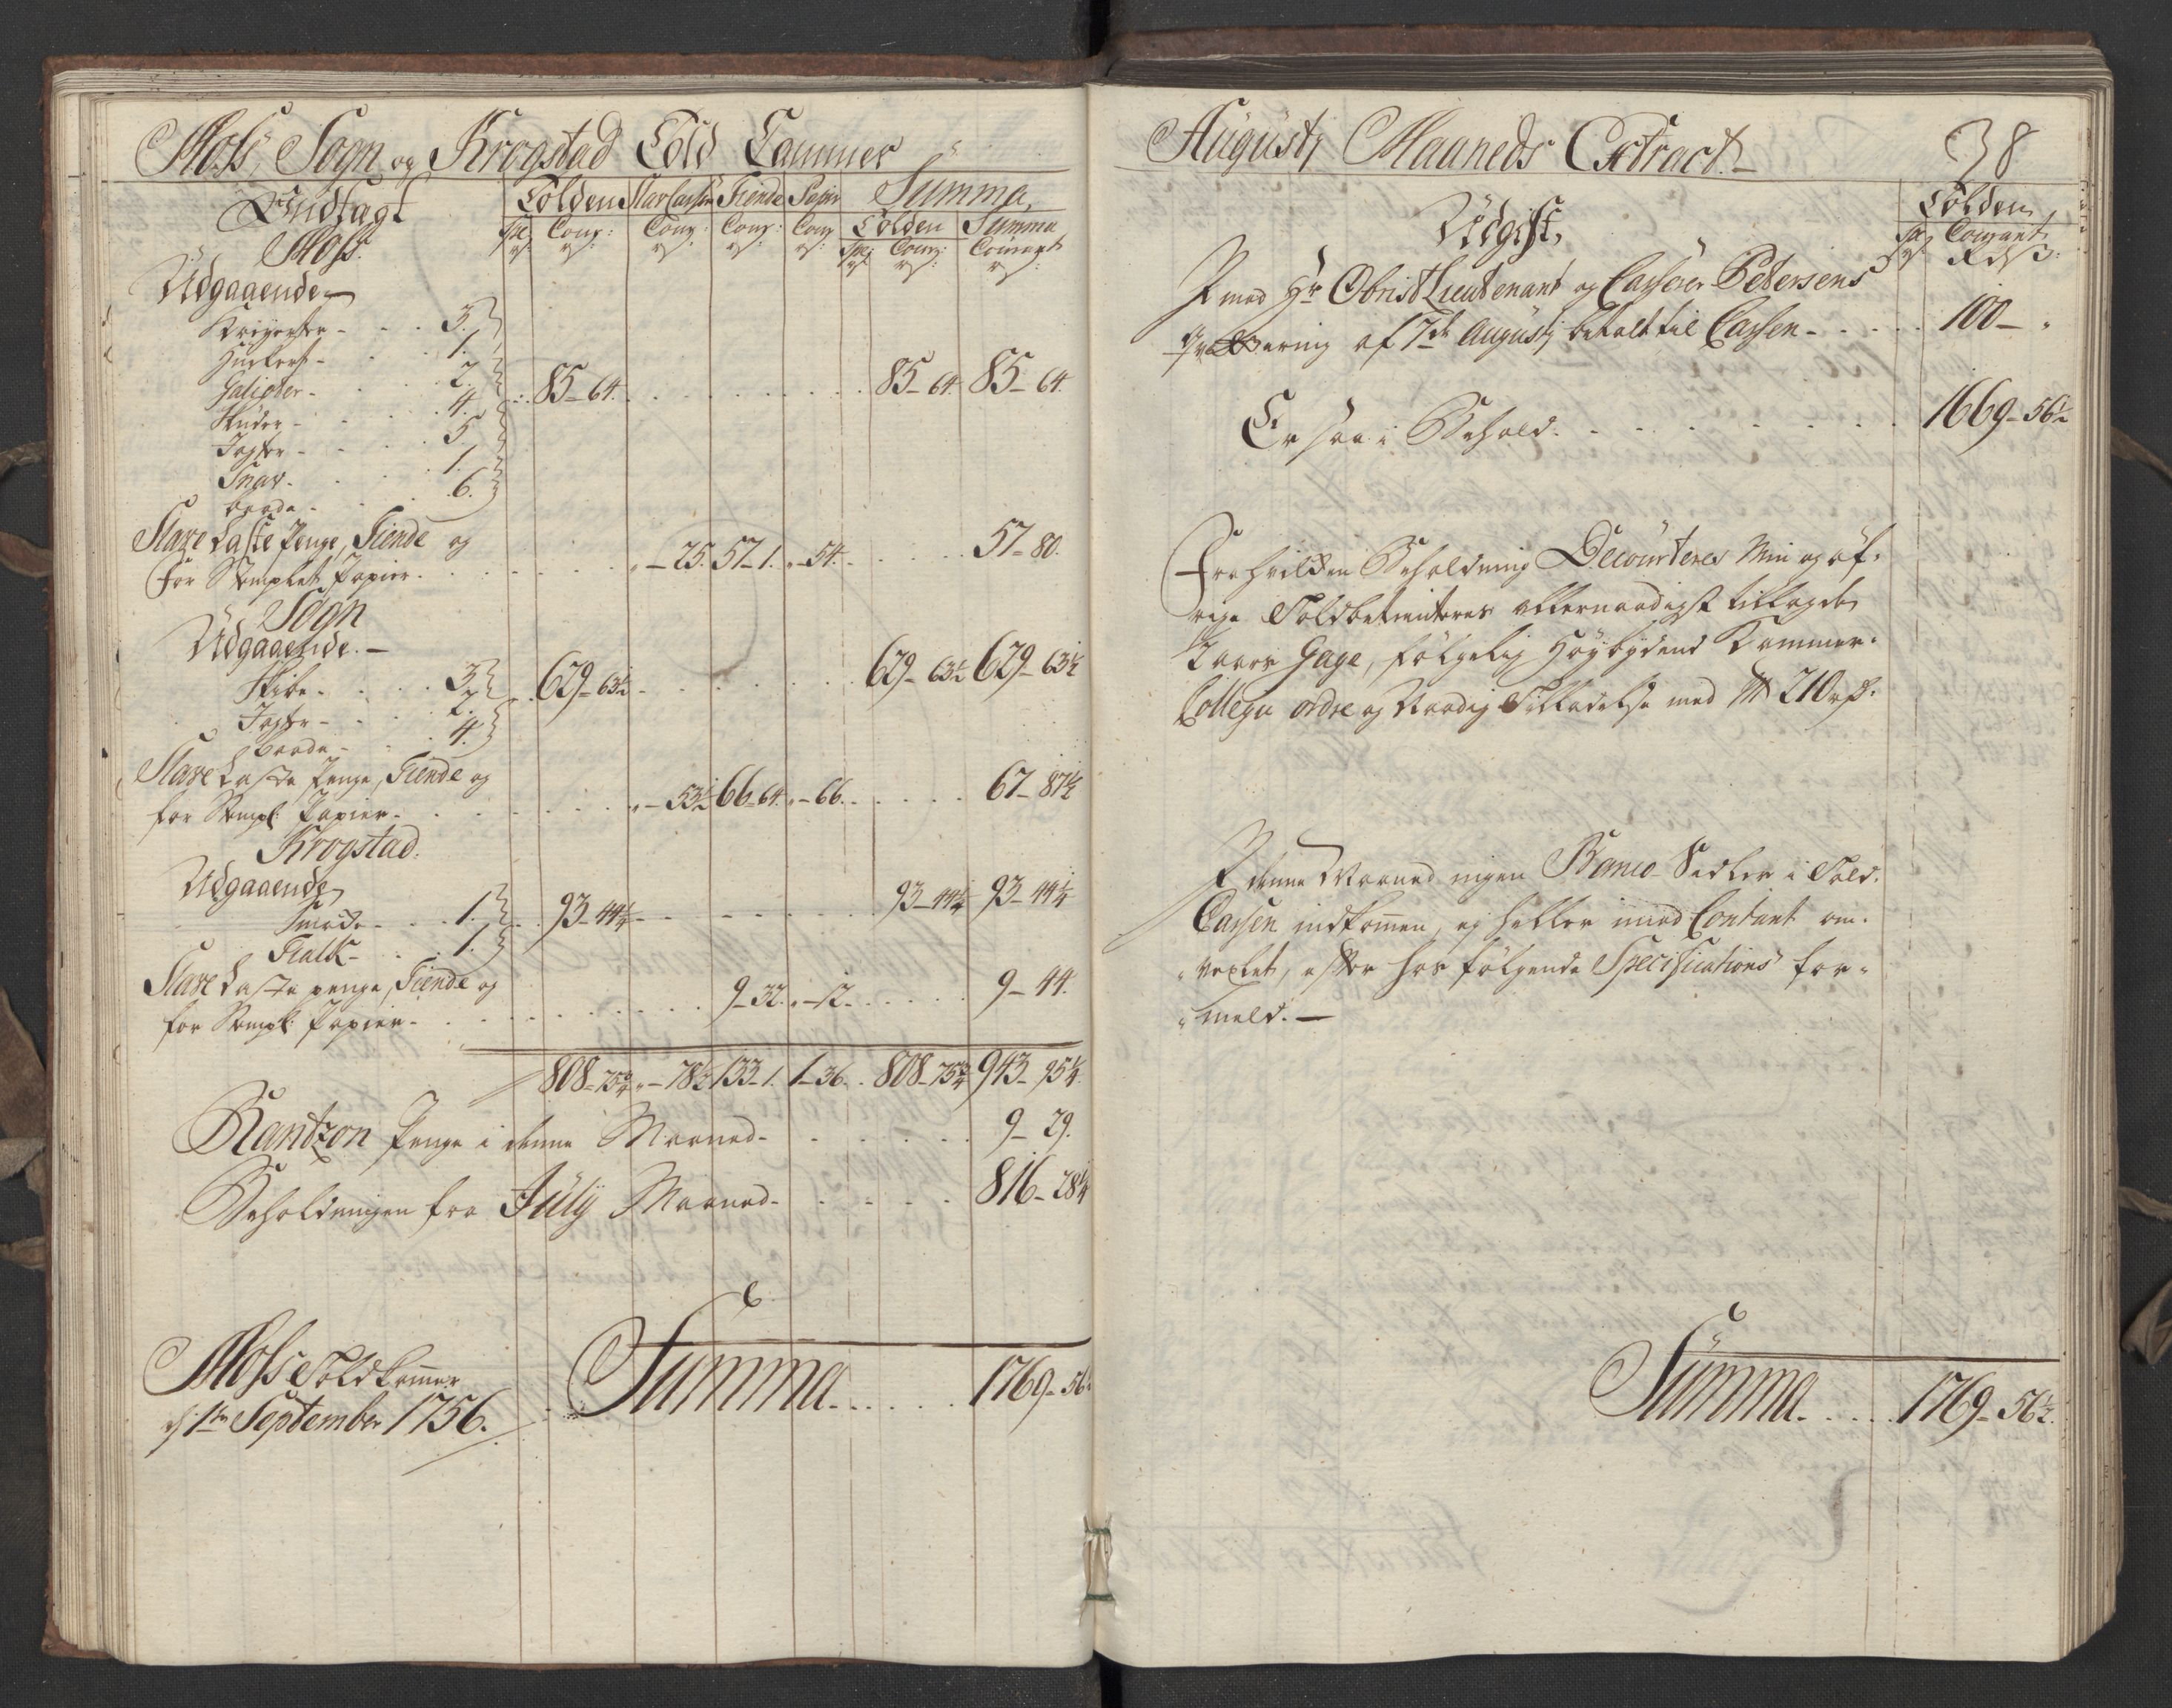 Moss, Sogn og Krogstad Told Cammer
Indtagt
Tolden Slav Cassen Tiende Papir Summa
Tolden Summa
Spe: Cour: Cour: Cour: Cour: Spe: Cour: Courant
Moss.
Udgaaende
Kreyerter - - - 3.
Huckert - - - 1.
Galioder - - - 2.
85 - 64. 85 - 64. 85 - 64.
Skuder - - - 4.
Jagter - - - 5.
Snav - - - 1.
baade - - - 6.
Slave Laste Penge, Tiende og
For Stemplet Papier. „ - 25. 57 - 1. „ - 54. 57 - 80.
Sogn
Udgaaende. -
Skibe - - - 3.
629 - 63½ 629 - 63½ 629 - 63½
Jagter - - - 2.
baade - - - 4.
Slave Laste Penge, Tiende og
for Stempl: Papier. „ - 53½ 66 - 64. „ - 66. 67 - 87½
Krogstad.
Udgaaende
Smakke - - - 1.
93 - 44¼ 93 - 44¼ 93 - 44¼
Tialk - - - 1.
Slave Laste penge, Tiende og
for Stempl: Papier - 9 - 32. „ - 12 - 9 - 44.
808 - 75¾ „ - 78½ 133 - 1. 1 - 36. 808 - 75¾ 943 - 95¼
Rantzon Penge i denne Maaned - 9 - 29.
Beholdningen fra July Maaned - 816 - 28¼
Moss Told Kammer
d: 1te September 1756.
Summa 1769 - 56½
Augusti Maaneds Extract. - 38
Udgift,
Tolden
Spe Courant
Rd ß:
I med Hr Obrist Lieutenant og Casserer Petersens
qvittering af 7de Augusti betalt til Cassen - 100 - „
Er saa i Behold. 1669 - 56½
Fra hvilken Beholdning Decourteres Min og øf-
rige Toldbetienteres allernaadigst tillagde
Aars Gage, følgelig Høybydend Kammer-
Collegii ordre og Naadig Tilladelse med 210 rd.
I denne Maaned ingen Banco Sedler i Told-
Cassen indkommen, ej heller imod Contant om-
vexlet, efter hos følgende Specifications for-
meld. -
Summa 1769 - 56½